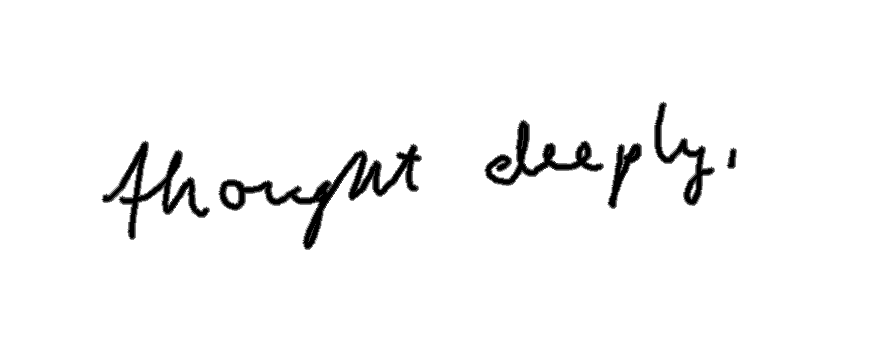 thought deeply,